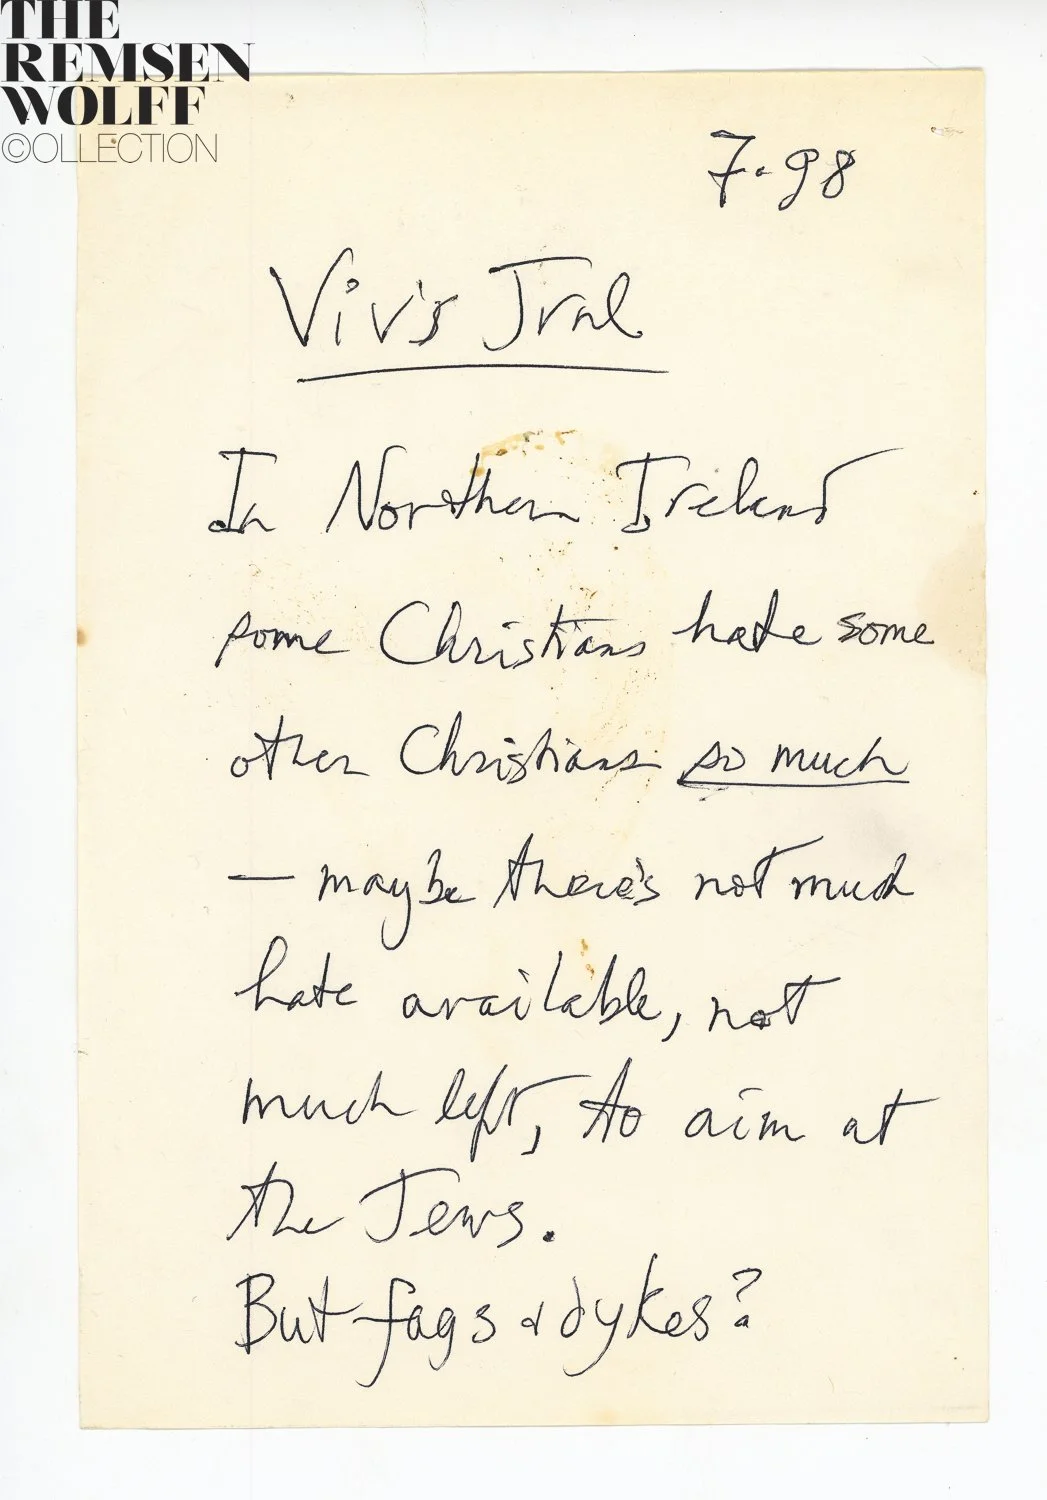 THE
REMSEN
WOLFF
©OLLECTION
7·98
Viv's Jrnl
In Northern Ireland
some Christians hate some
other Christians so much
— maybe there's not much
hate available, not
much left, to aim at
the Jews.
But fags & dykes?